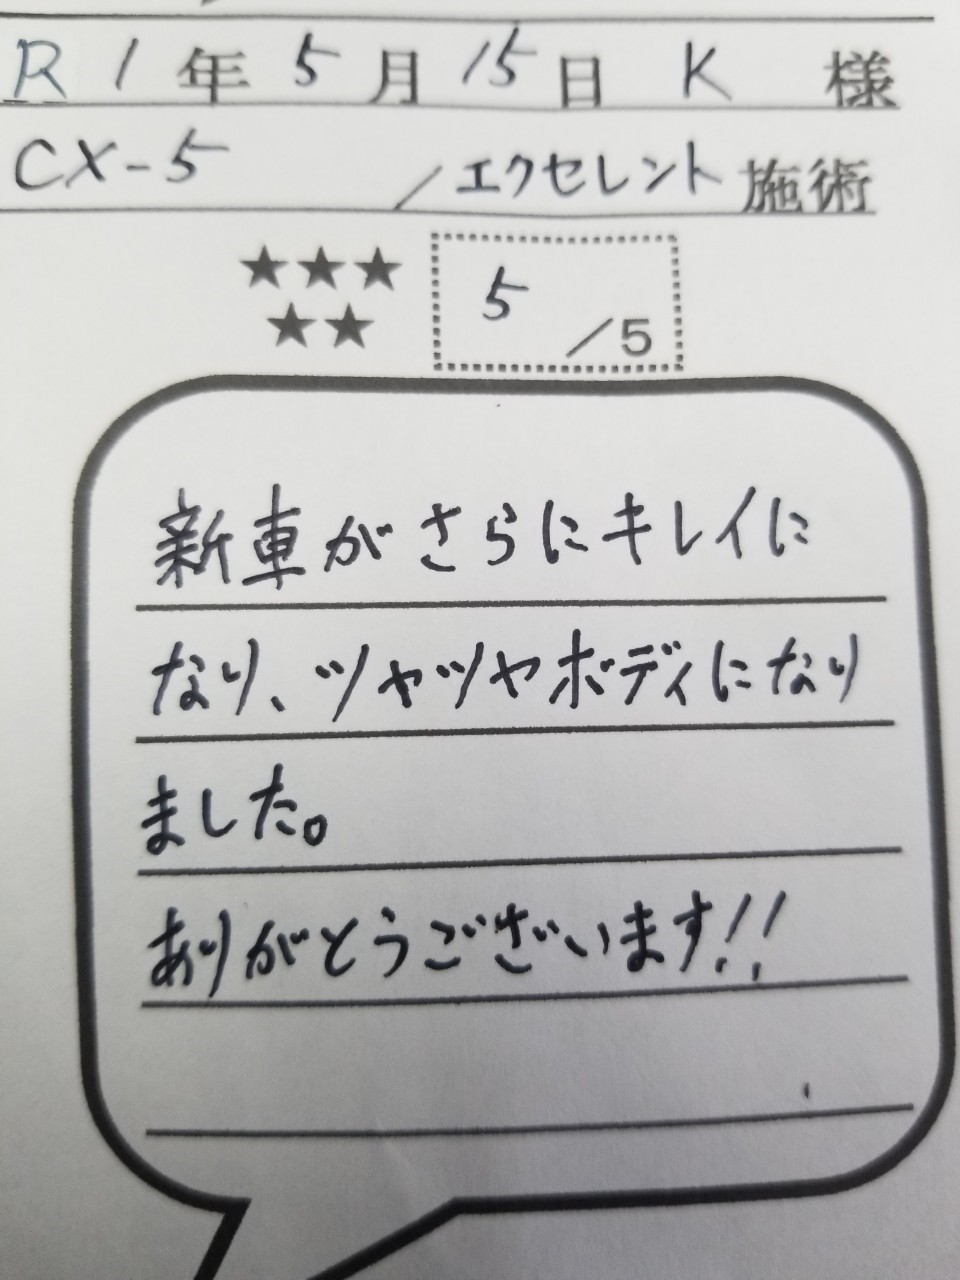 R1年5月15日 K 様
CX-5 /エクセレント施術
★★★
★★
5/5
新車がさらにキレイに
なり、ツヤツヤボディになり
ました。
ありがとうございます!!